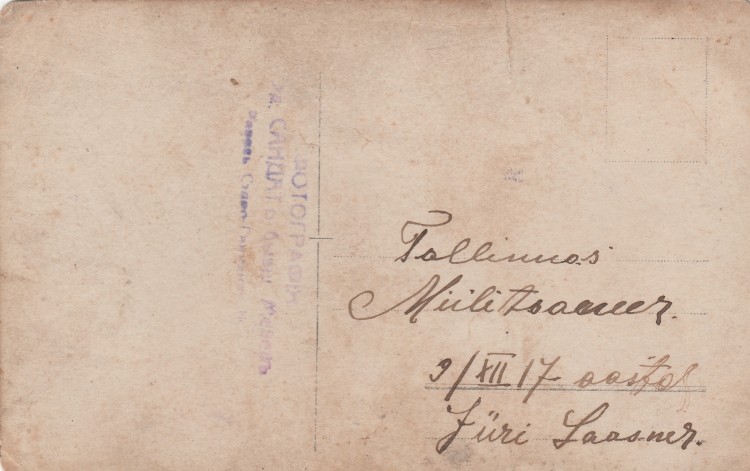 ФОТОГРАФІЯ
САНДАГО
Tallinnas
Miilitsameer.
9/XII 17 aastal
Jüri Laasner.